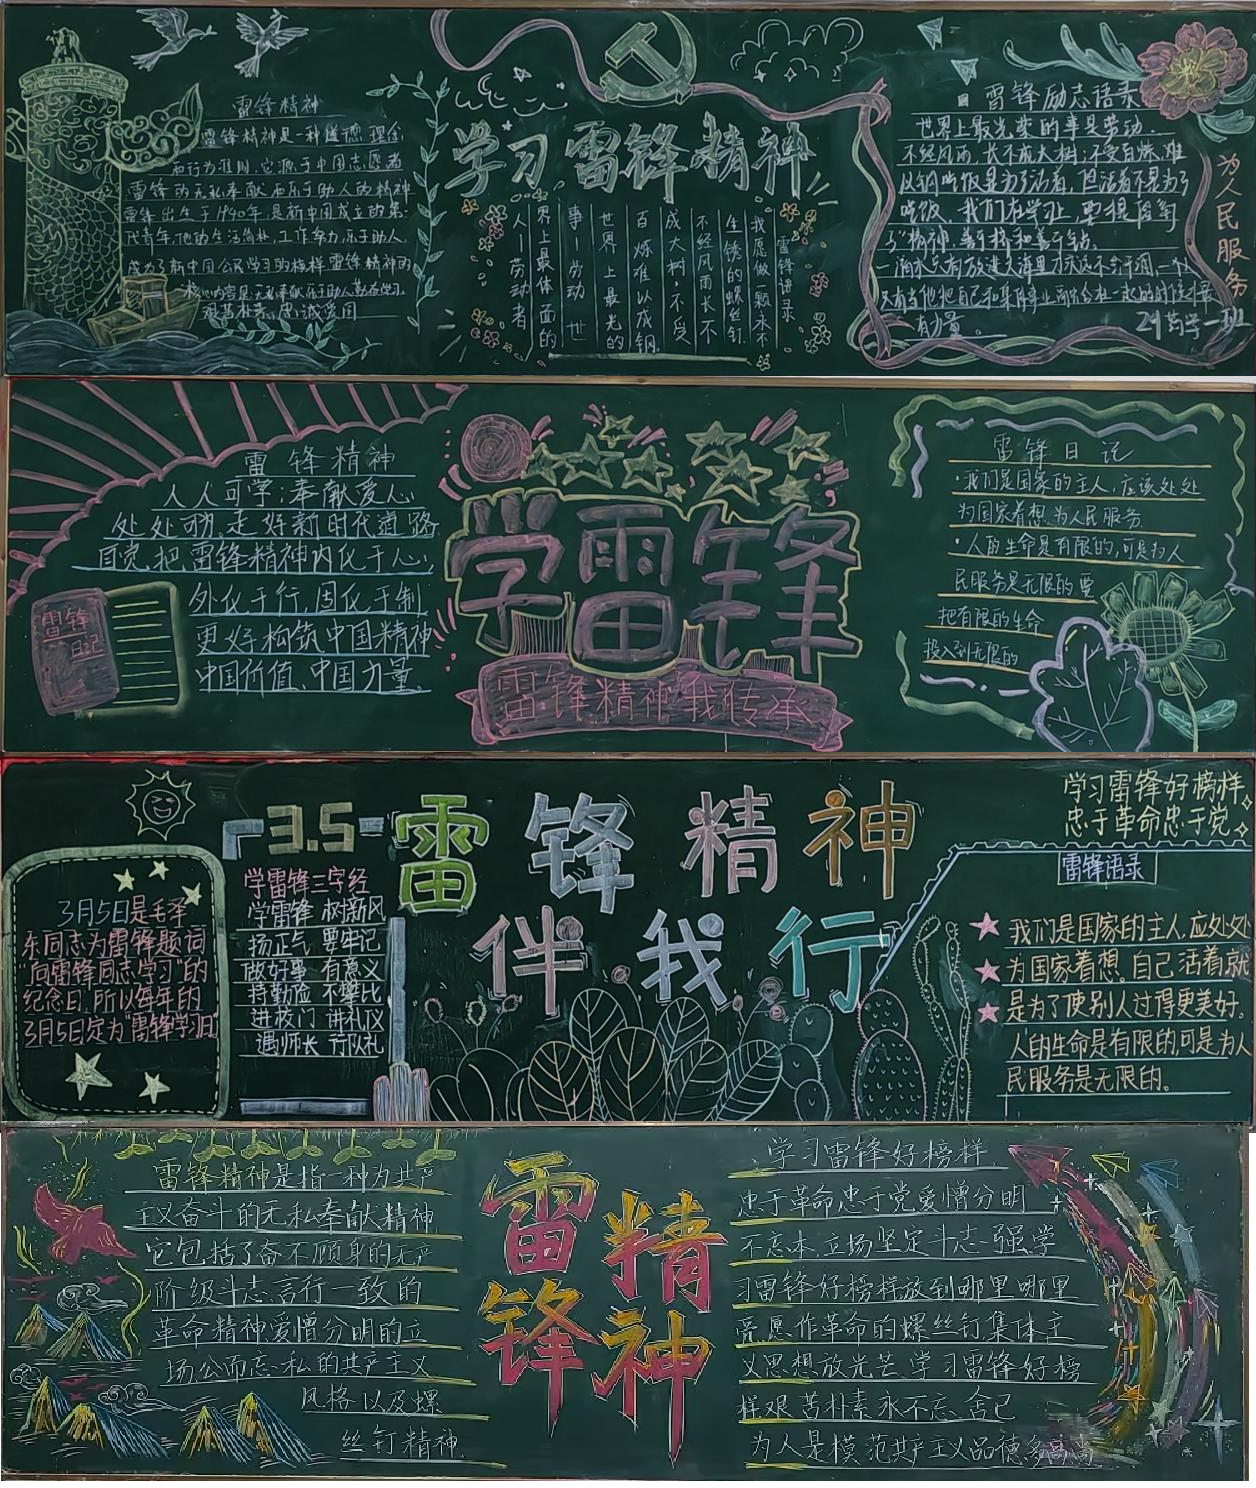 雷锋精神
雷锋精神是一种道德理念
和行为准则，它源于中国志愿者
雷锋的无私奉献和乐于助人的精神
雷锋出生于1940年，是新中国成立的第一
代青年，他的生活简朴，工作努力，乐于助人，
成为了新中国公民学习的榜样 雷锋精神的
核心内容是无私奉献
忠诚爱国
学习雷锋精神
雷锋语录
我愿做一颗永不
生锈的螺丝钉
不经风雨长不
成大树，不受
百炼难以成钢
世界上最光的
事—劳动 世
界上最体面的
人—劳动者
雷锋励志语录
世界上最光荣的事是劳动.
不经风雨，长不成大树；不受百炼，难
以钢 吃饭是为了活着，但活着不是为了
吃饭，我们在学习上，要提倡“钉
子”精神，善于挤和善于钻。
一滴水只有放进大海里才永远不会干涸，一个人
只有当他把自己和集体事业融合在一起的时候才最
有力量.
为人民服务
24药学一班
雷锋精神
人人可学；奉献爱心
处处可为，走好新时代道路
自觉把雷锋精神内化于心，
外化于行，固化于制
更好构筑中国精神
中国价值、中国力量。
雷锋
日记
学雷锋
雷锋精神我传承
雷锋日记
·我们是国家的主人，应该处处
为国家着想，为人民服务
·人的生命是有限的，可是为人
民服务是无限的 要
把有限的生命
投入到无限的
3月5日是毛泽
东同志为雷锋题词
“向雷锋同志学习”的
纪念日，所以每年的
3月5日定为“雷锋学习日”
3.5
学雷锋三字经
学雷锋 树新风
扬正气 要牢记
做好事 有意义
持勤俭 不攀比
进校门 讲礼仪
遇师长 行队礼
雷锋精神
伴我行
学习雷锋好榜样
忠于革命忠于党
雷锋语录
我们是国家的主人，应处处
为国家着想。自己活着就
是为了使别人过得更美好。
人的生命是有限的，可是为人
民服务是无限的。
雷锋精神是指一种为共产
主义奋斗的无私奉献精神
它包括了奋不顾身的无产
阶级斗志，言行一致的
革命精神爱憎分明的立
场公而忘私的共产主义
风格以及螺
丝钉精神
雷锋
精神
学习雷锋好榜样
忠于革命忠于党爱憎分明
不忘本，立场坚定斗志强学
习雷锋好榜样放到哪里哪里
亮愿作革命的螺丝钉集体主
义思想放光芒学习雷锋好榜
样艰苦朴素永不忘舍己
为人是模范共产主义品德多高尚